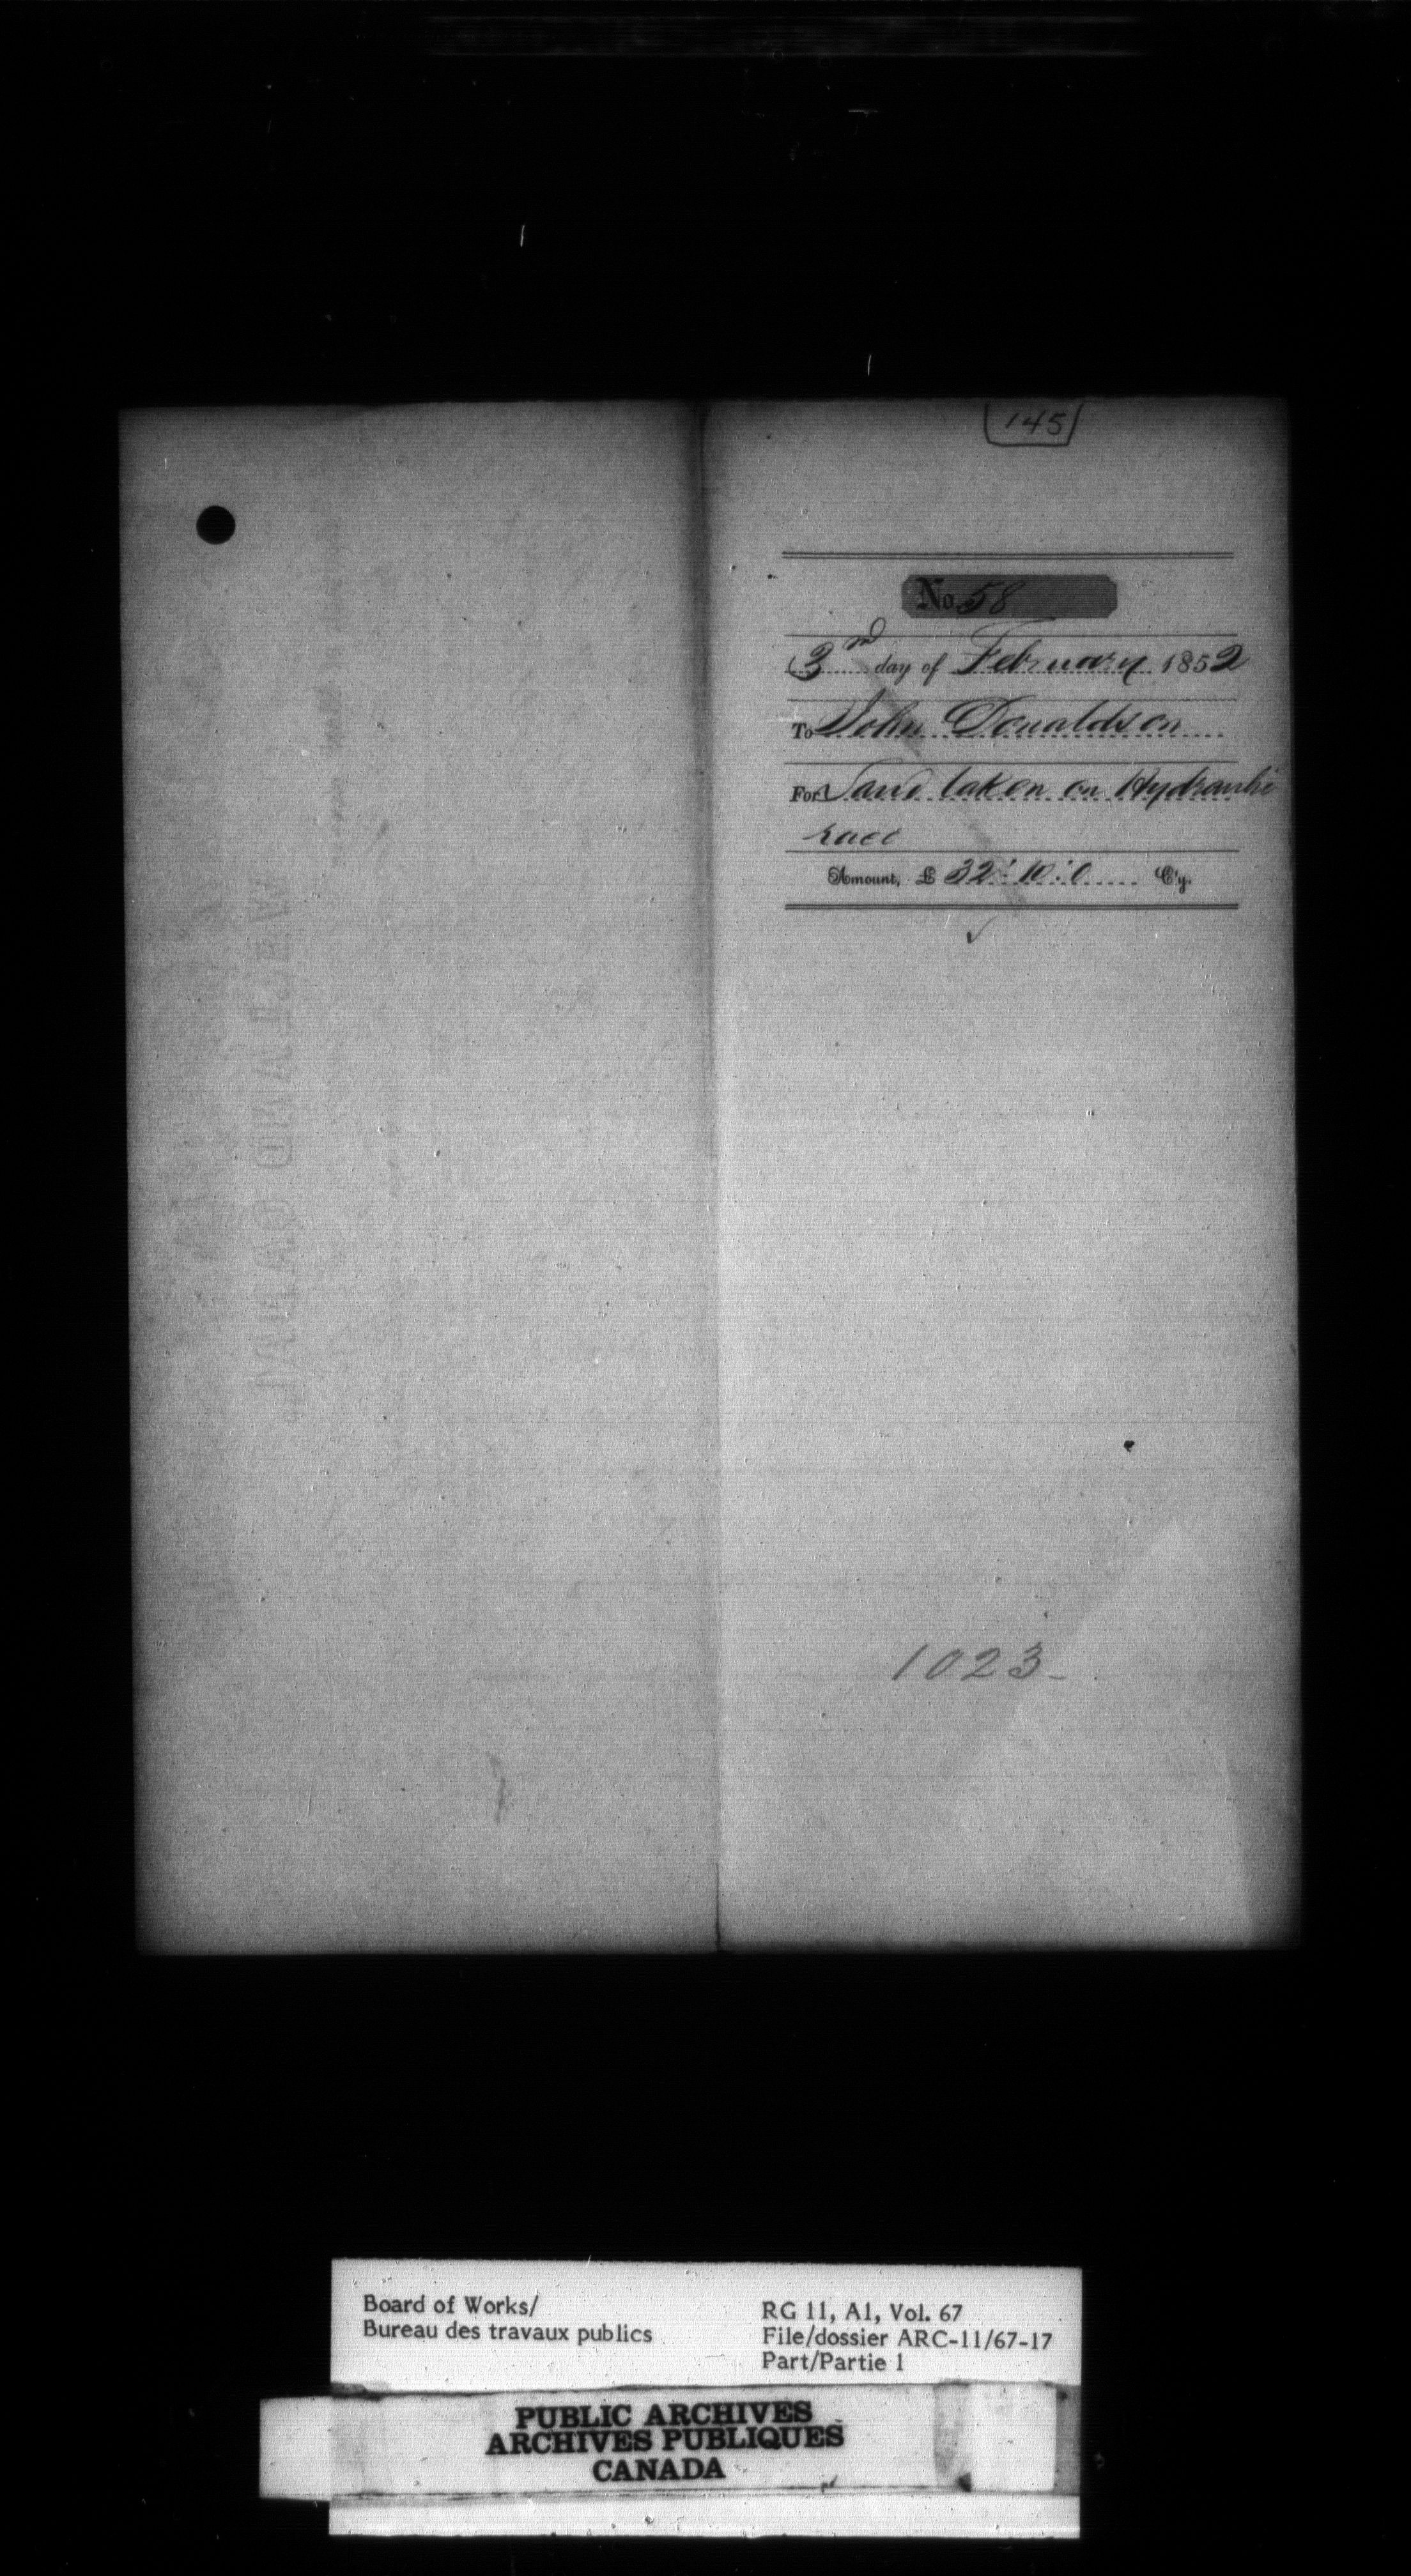 145
No. 58
3rd day of February 1852
To John Donaldson
For Land taken on Hydraulic
race
Amount, £ 32:10:0 C'y.
1023-
Board of Works/
Bureau des travaux publics
RG 11, A1, Vol. 67
File/dossier ARC-11/67-17
Part/Partie 1
PUBLIC ARCHIVES
ARCHIVES PUBLIQUES
CANADA